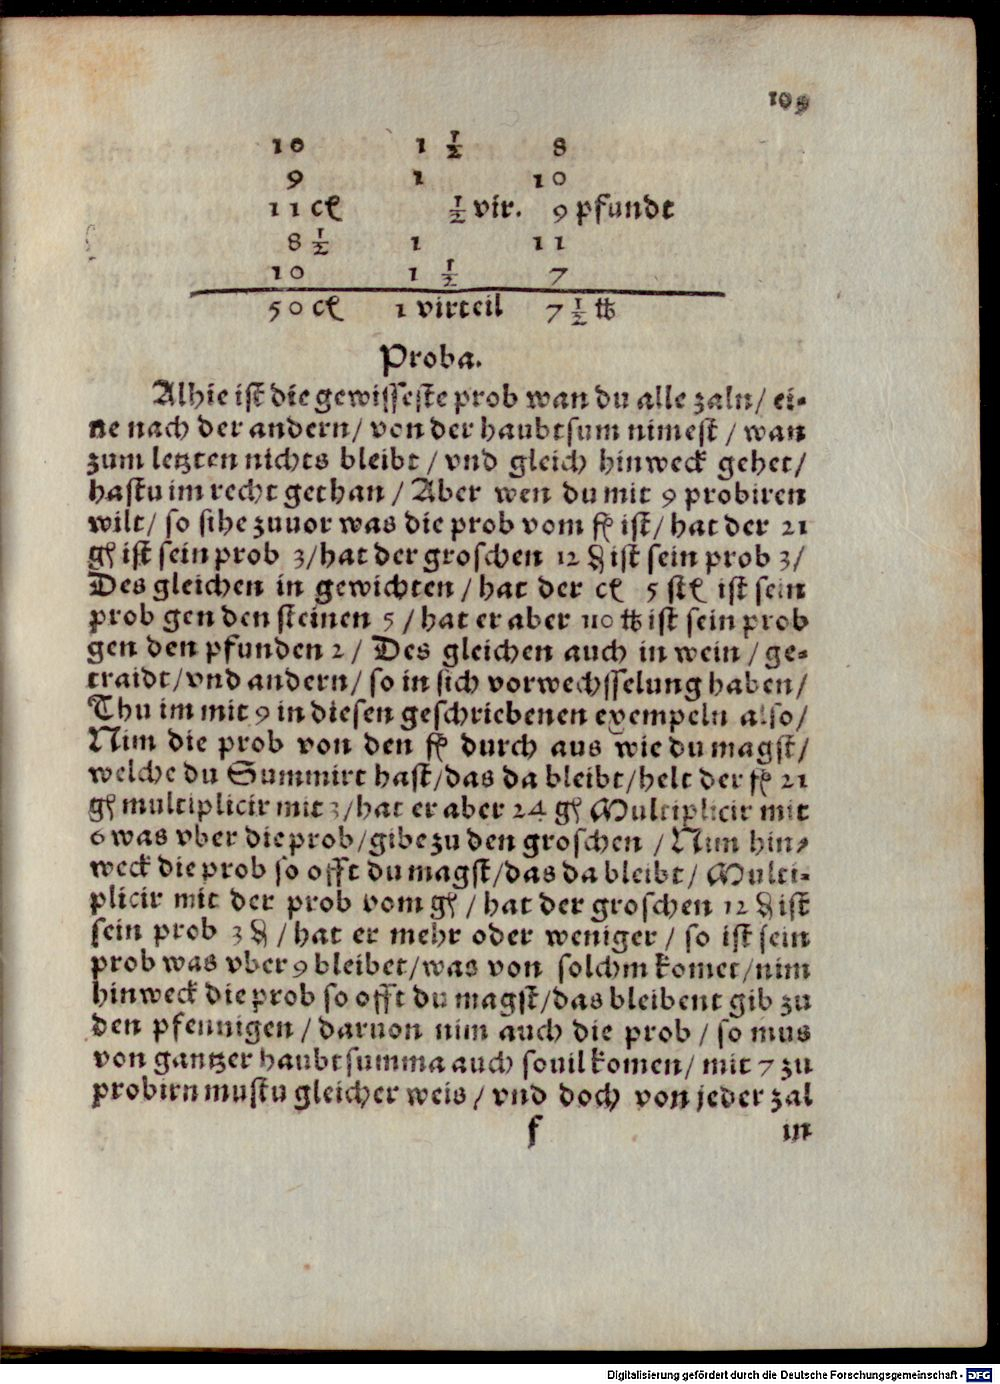 109
10 1 ½ 8
9 1 10
11 cţ ½ vir. 9 pfundt
8 ½ 1 11
10 1 ½ 7
50 cţ 1 virteil 7 ½ ℔
Proba.
Alhie ist die gewisseste prob wan du alle zaln/ ei-
ne nach der andern/ von der haubtsum nimest / wan
zum letzten nichts bleibt / vnd gleich hinweck gehet/
hastu im recht gethan / Aber wen du mit 9 probiren
wilt/ so sihe zuuor was die prob vom fł ist/ hat der 21
gſ ist sein prob 3/hat der groschen 12 ₰ ist sein prob 3/
Des gleichen in gewichten / hat der cţ 5 stţ ist sein
prob gen den steinen 5 / hat er aber 110 ℔ ist sein prob
gen den pfunden 2 / Des gleichen auch in wein / ge-
traidt/vnd andern/ so in sich vorwechsselung haben/
Thu im mit 9 in diesen geschriebenen exempeln also/
Nim die prob von den fł durch aus wie du magst/
welche du Summirt hast/das da bleibt/helt der fł 21
gſ multiplicir mit 3/hat er aber 24 gſ Multiplicir mit
6 was vber die prob/gibe zu den groschen / Nim hin-
weck die prob so offt du magst/das da bleibt/ Multi-
plicir mit der prob vom gſ / hat der groschen 12 ₰ ist
sein prob 3 ₰ / hat er mehr oder weniger / so ist sein
prob was vber 9 bleibet/was von solchm komet/nim
hinweck die prob so offt du magst/das bleibent gib zu
den pfennigen / daruon nim auch die prob / so mus
von gantzer haubtsumma auch souil komen/ mit 7 zu
probirn mustu gleicher weis / vnd doch von jeder zal
f in
Digitalisierung gefördert durch die Deutsche Forschungsgemeinschaft - DFG